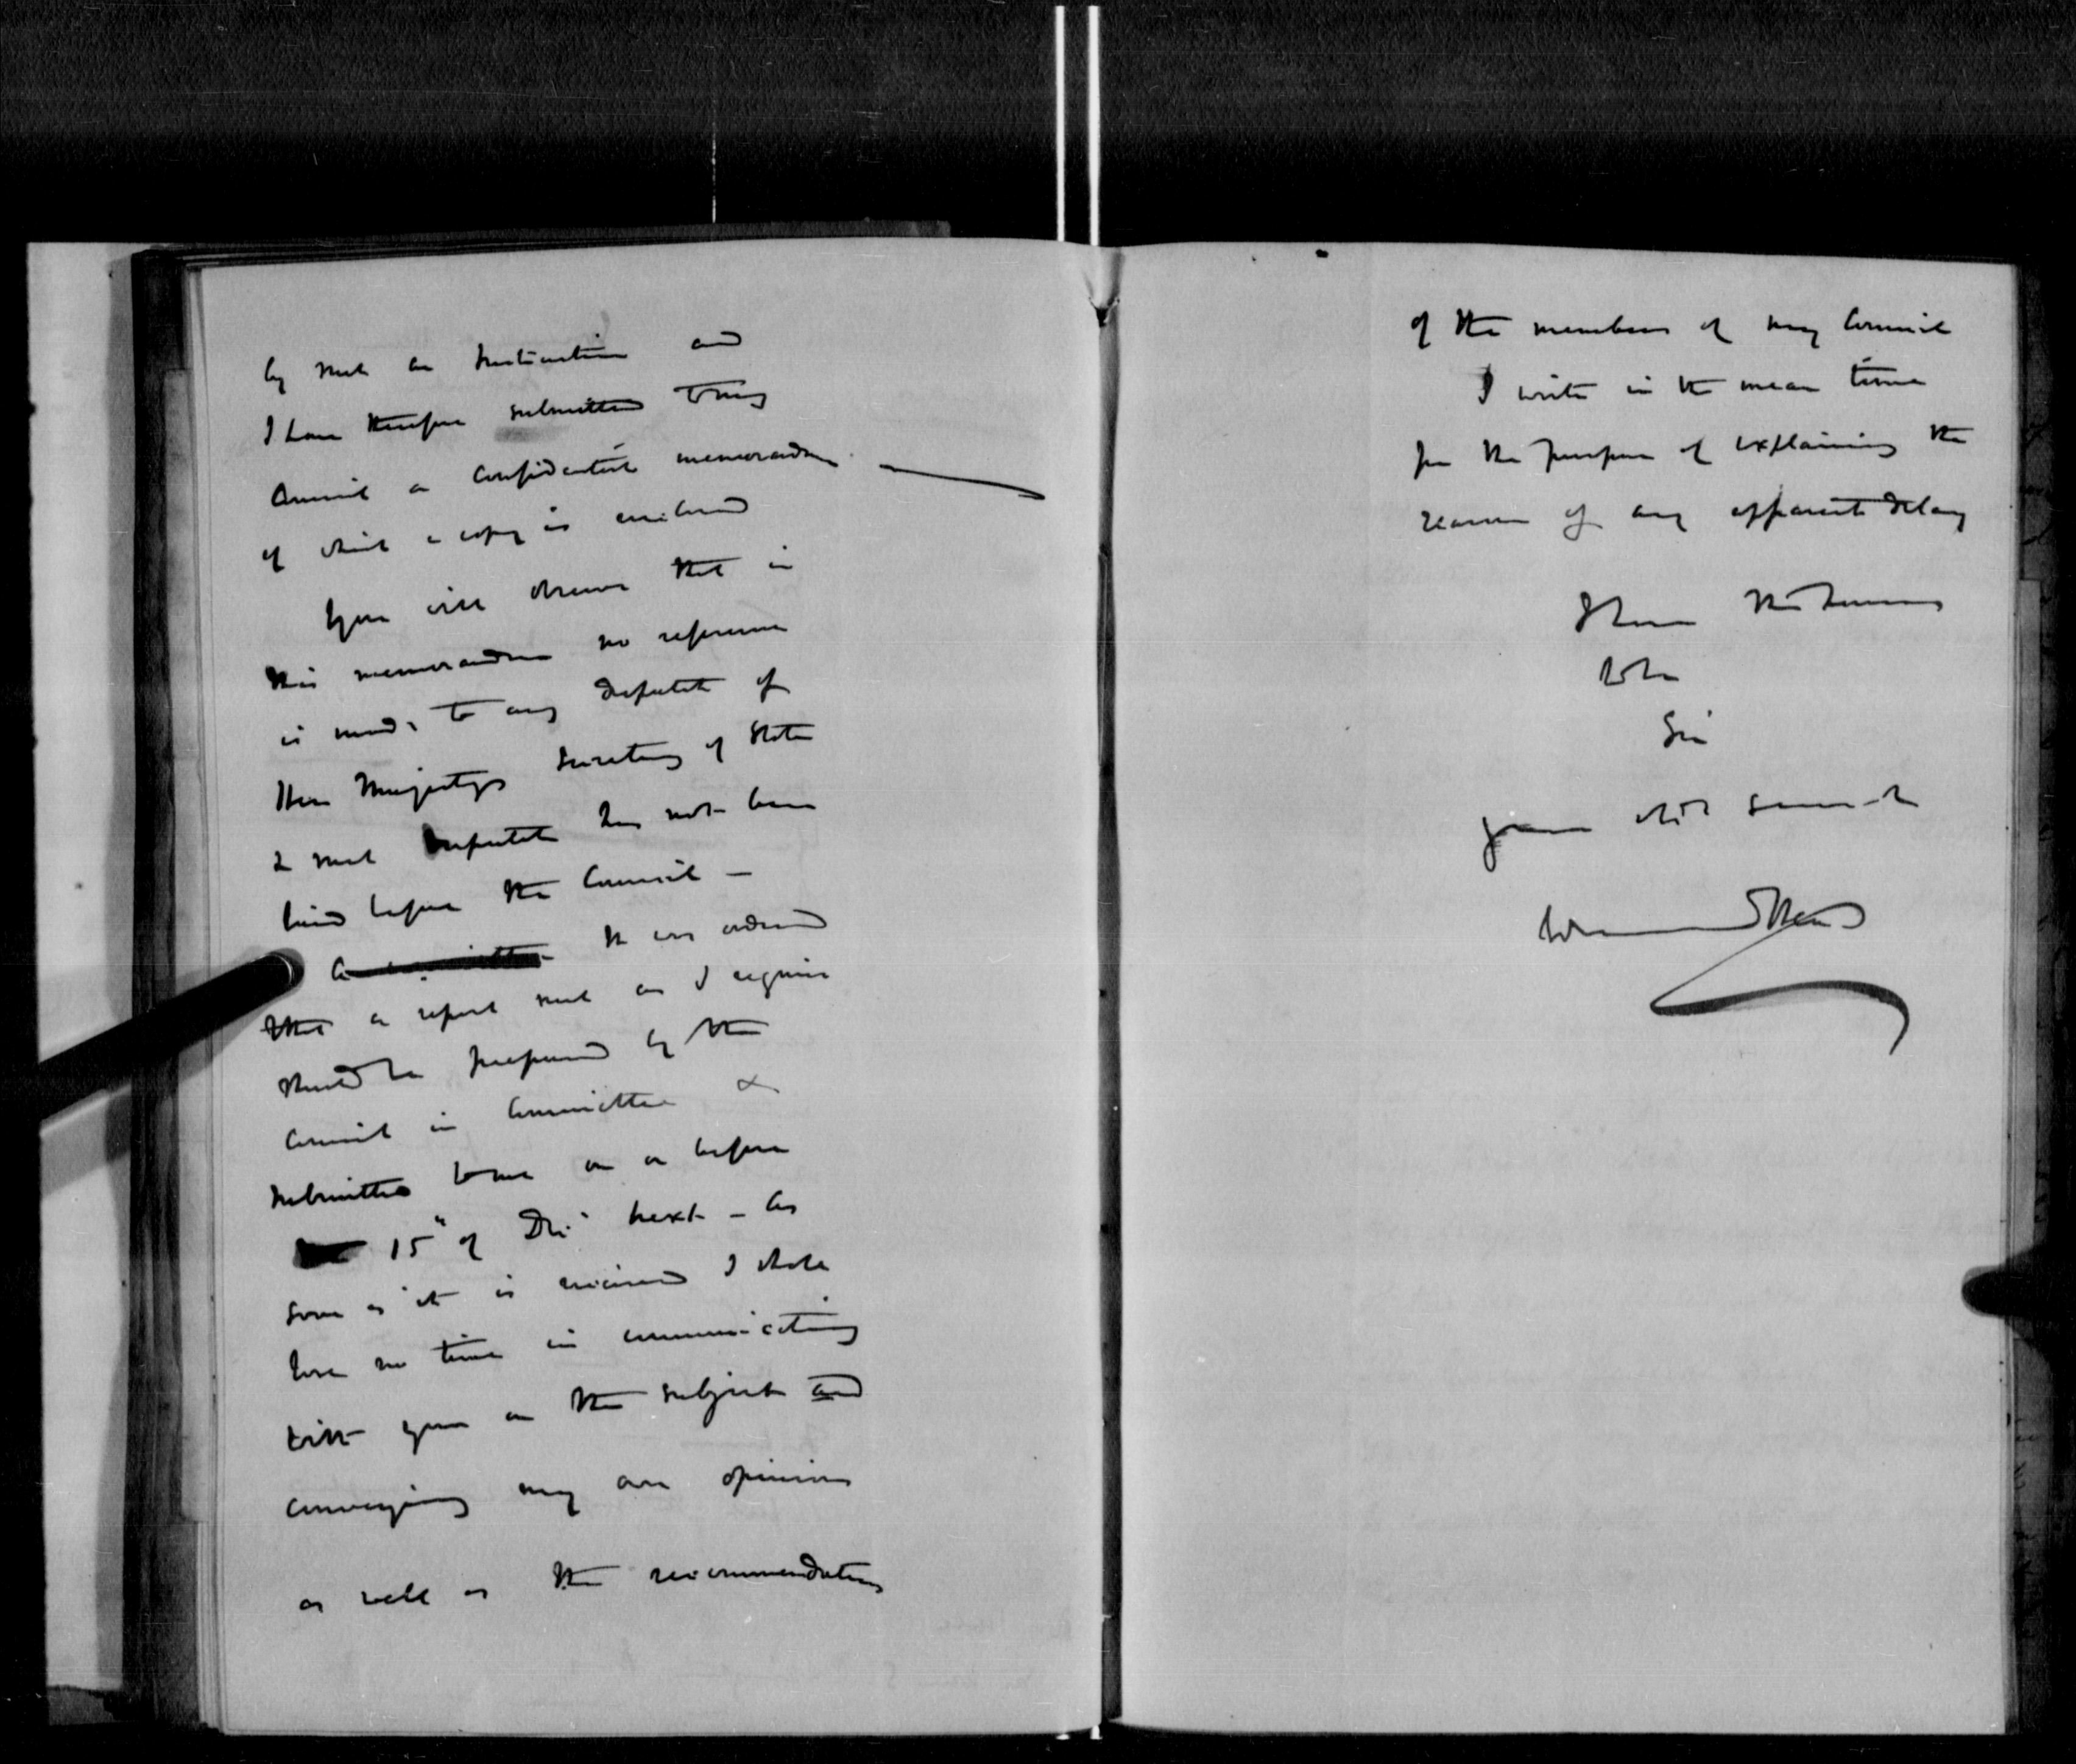 by such an Institution and
I have therefore submitted to my
Council a confidential memorandum
of which a copy is enclosed
You will observe that in
this memorandum no reference
is made to any despatch of
Her Majestys Secretary of State
& such despatch has not been
laid before the Council –
It was ordered
that a report such as I require
should be prepared by the
Council in Committee &
submitted to me on or before
15" of Dec. next – As
soon as it is received I shall
lose no time in communicating
with you on the subject and
conveying my own opinion
as well as the recommendations
of the members of my Council
I write in the mean time
for the purpose of explaining the
reason of any apparent delay
I have the honour
to be
Sir
your obdt servant